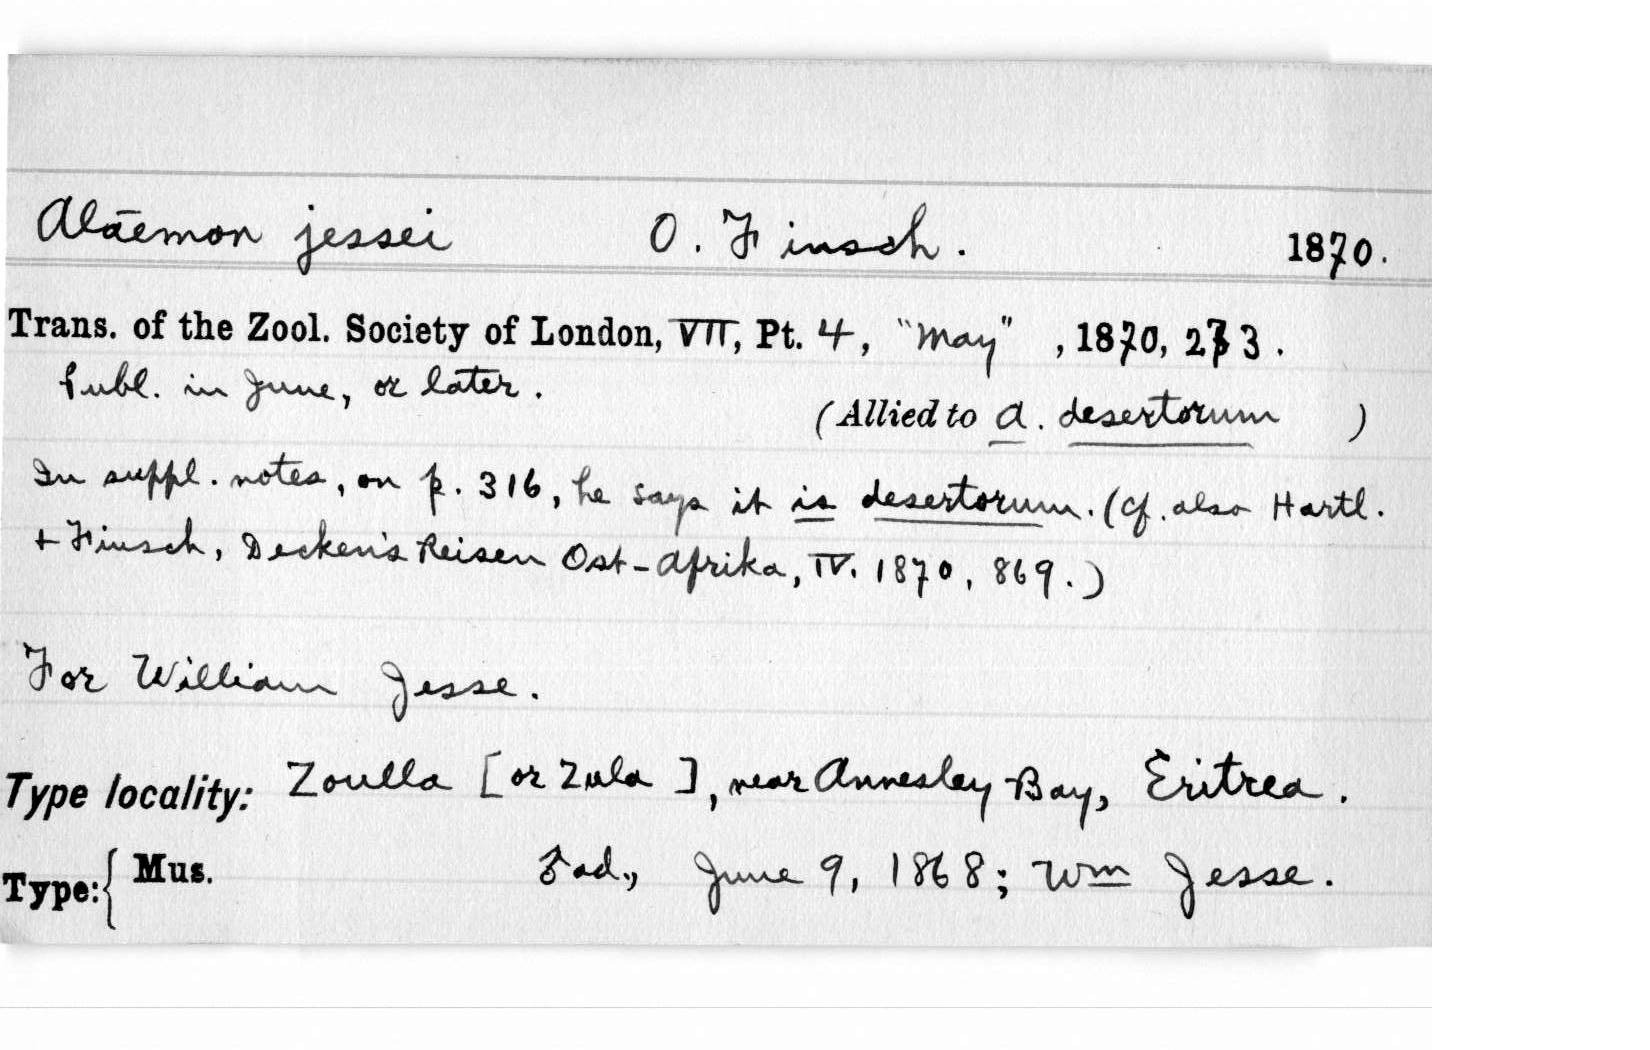 Alāemon jessei O. Finsch. 1870.
Trans. of the Zool. Society of London, VII, Pt. 4, "May", 1870, 273.
Publ. in June, or later.
(Allied to A. desertorum )
In suppl. notes, on p. 316, he says it is desertorum. (Cf. also Hartl.
+ Finsch, Decken's Reisen Ost-Afrika, IV. 1870, 869.)
For William Jesse.
Type locality: Zoulla [or Zula ], near Annesley Bay, Eritrea.
Type:{ Mus. ad., June 9, 1868; Wm Jesse.